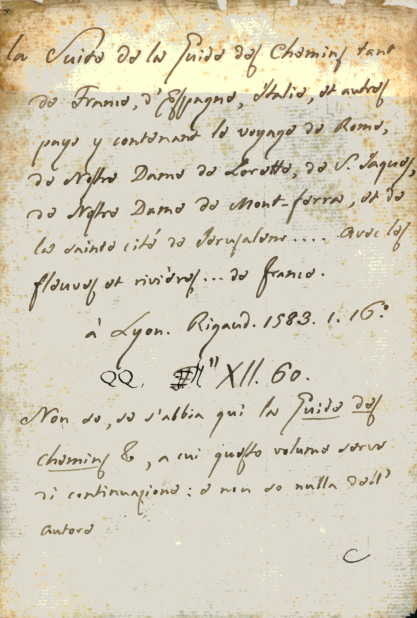 la Suite de la Guide des Chemins tant
de France, d'Espagne, Italie, et autres
pays y contenant le voyage de Rome,
de Nostre Dame de Lorette, de S. Jaques,
de Nostre Dame de Mont-ferra, et de
la sainte cité de Jerusalem.... avec les
fleuves et rivières... de france.
à Lyon. Rigaud. 1583. 1. 16.º
QQ. XII. 60.
Non so, se s'abbia qui la Guide des
chemins &, a cui questo volume serve
di continuazione: e non so nulla dell'
autore
C